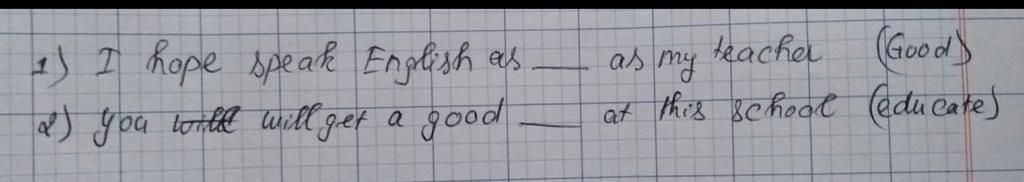 1) I hope speak English as ___ as my teacher (Good)
2) you will will get a good ___ at this school (educate)